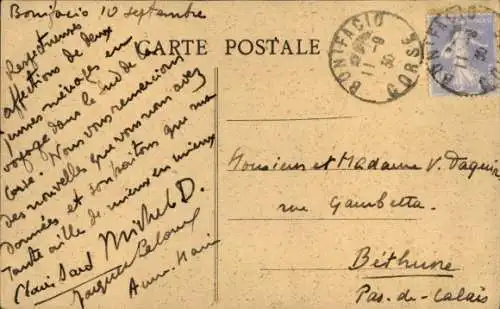 Bonifacio 10 septembre
CARTE POSTALE
Respectueuses
affections de deux
jeunes ménages en
voyage dans le sud de la
Corse. Nous vous remercions
des nouvelles que vous nous avez
données et souhaitons que
Tante aille de mieux en mieux
Michel D.
BONIFACIO
11 -9
30
CORSE
BONIFACIO
11 -9
30
Monsieur et Madame V. Daquin
rue Gambetta
Béthune
Pas-de-Calais